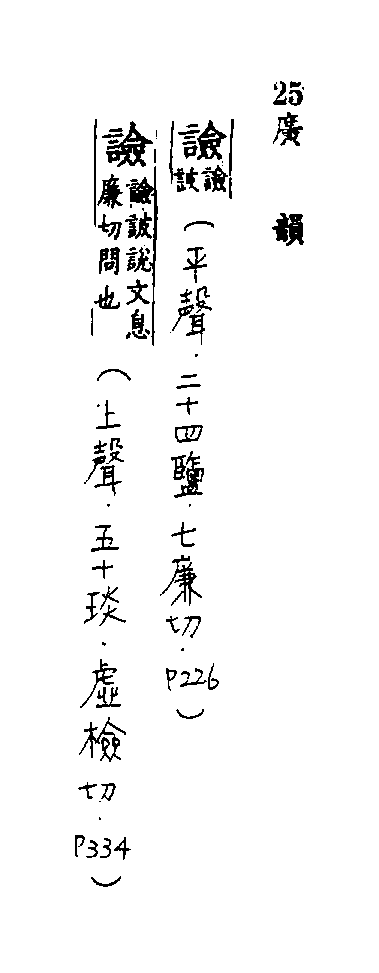 25廣韻
譣 譣詖(平聲.二十四鹽.七廉切.P226)
譣 譣詖說文息廉切問也(上聲.五十琰.虛檢切.P334)